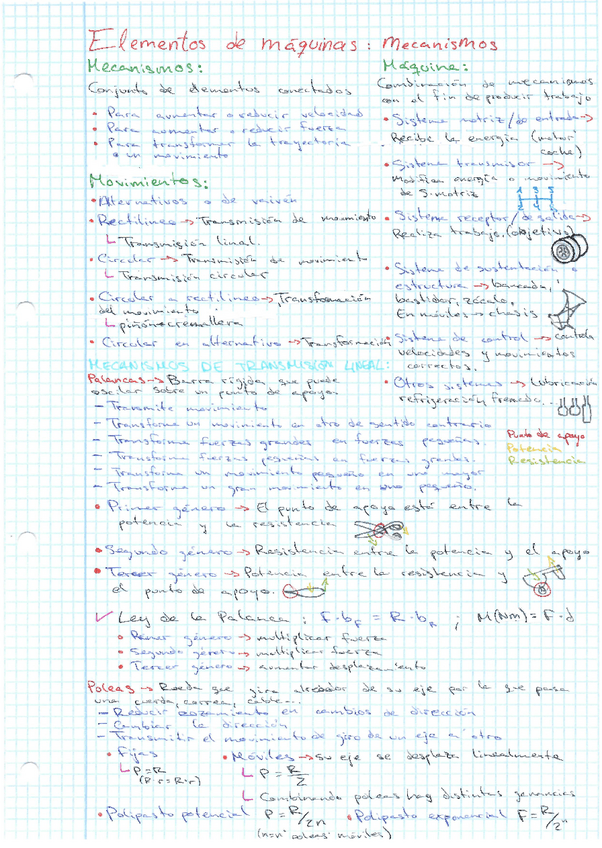 Elementos de máquinas: Mecanismos
Mecanismos:
Conjunto de elementos conectados
• Para aumentar o reducir velocidad
• Para aumentar o reducir fuerza
• Para transformar la trayectoria
o un movimiento
Movimientos:
• Alternativos o de vaivén
• Rectilineo → Transmisión de movimiento
Transmisión lineal.
• Circular → Transmisión de movimiento
Transmisión circular
• Circular a rectilineo → Transformación
del movimiento
piñón-cremallera
• Circular en alternativo → Transformación
Máquina:
Combinación de mecanismos
con el fin de producir trabajo
• Sistema motriz/de entrada →
Recibe la energía (motor
coche)
• Sistema transmisor →
Modifica energía o movimiento
de S. motriz
1 3 5
2 4
• Sistema receptor/de salida →
Realiza trabajo. (objetivo)
• Sistema de sustentación o
estructura → bancada,
bastidor, zócalo,
En móviles → chasis
• Sistema de control → controla
velocidades y movimientos
correctos.
• Otros sistemas → lubricación
refrigeración frenado...
MECANISMOS DE TRANSMISION LINEAL:
Palancas → Barra rígida que puede
oscilar sobre un punto de apoyo.
- Transmite movimiento
- Transforma un movimiento en otro de sentido contrario
- Transforma fuerzas grandes en fuerzas pequeñas.
- Transforma fuerzas pequeñas en fuerzas grandes.
- Transforma un movimiento pequeño en uno mayor
- Transforma un gran movimiento en uno pequeño.
Punto de apoyo
Potencia
Resistencia
• Primer género → El punto de apoyo está entre la
potencia y la resistencia
• Segundo género → Resistencia entre la potencia y el apoyo
• Tercer género → Potencia entre la resistencia y
el punto de apoyo.
✓ Ley de la Palanca: F·bF = R·bR ; M(Nm) = F·d
• Primer género → multiplicar fuerza
• Segundo género → multiplicar fuerza
• Tercer género → aumentar desplazamiento
Poleas → Rueda que gira alrededor de su eje por la que pasa
una cuerda, correa, cable...
- Reducir rozamiento en cambios de dirección
- Cambiar la dirección
- Transmitir el movimiento de giro de un eje a otro
• Fijas
P=R
(P·r=R·r)
• Móviles → Su eje se desplaza linealmente
P = R/2
Combinando poleas hay distintas ganancias
• Polipasto potencial P = R/2n
(n=nº poleas móviles)
• Polipasto exponencial F = R/2ⁿ